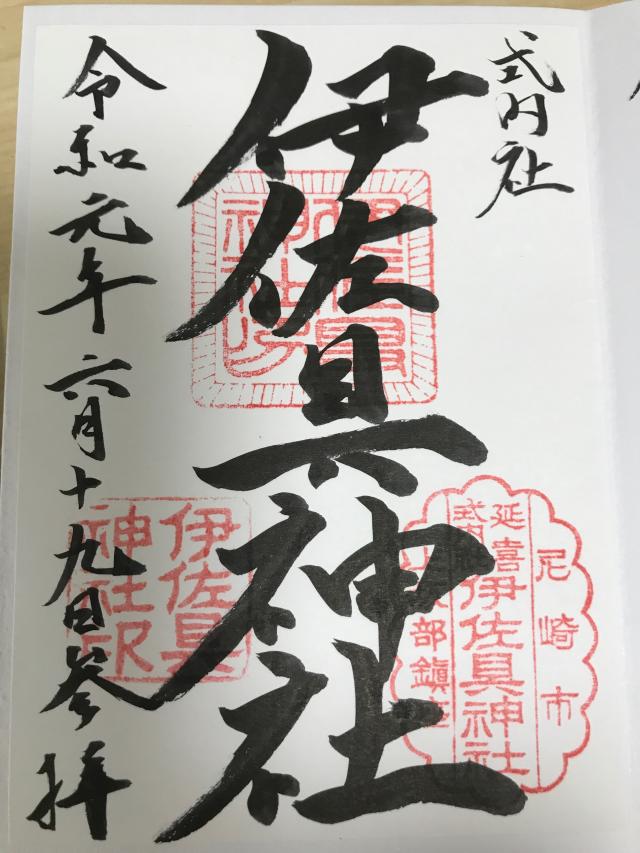 式内社
伊佐具神社
令和元年六月十九日参拝
伊佐具
神社印
尼崎市
延喜
式内
伊佐具神社
部鎮座